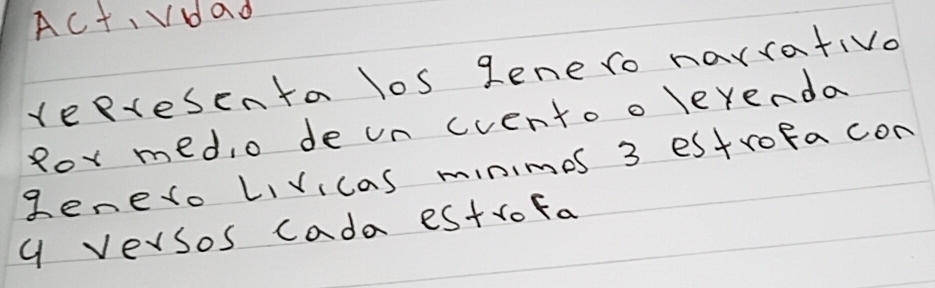 Actividad
representa los genero narrativo
por medio de un cuento o leyenda
genero Liricas minimos 3 estrofa con
4 versos cada estrofa